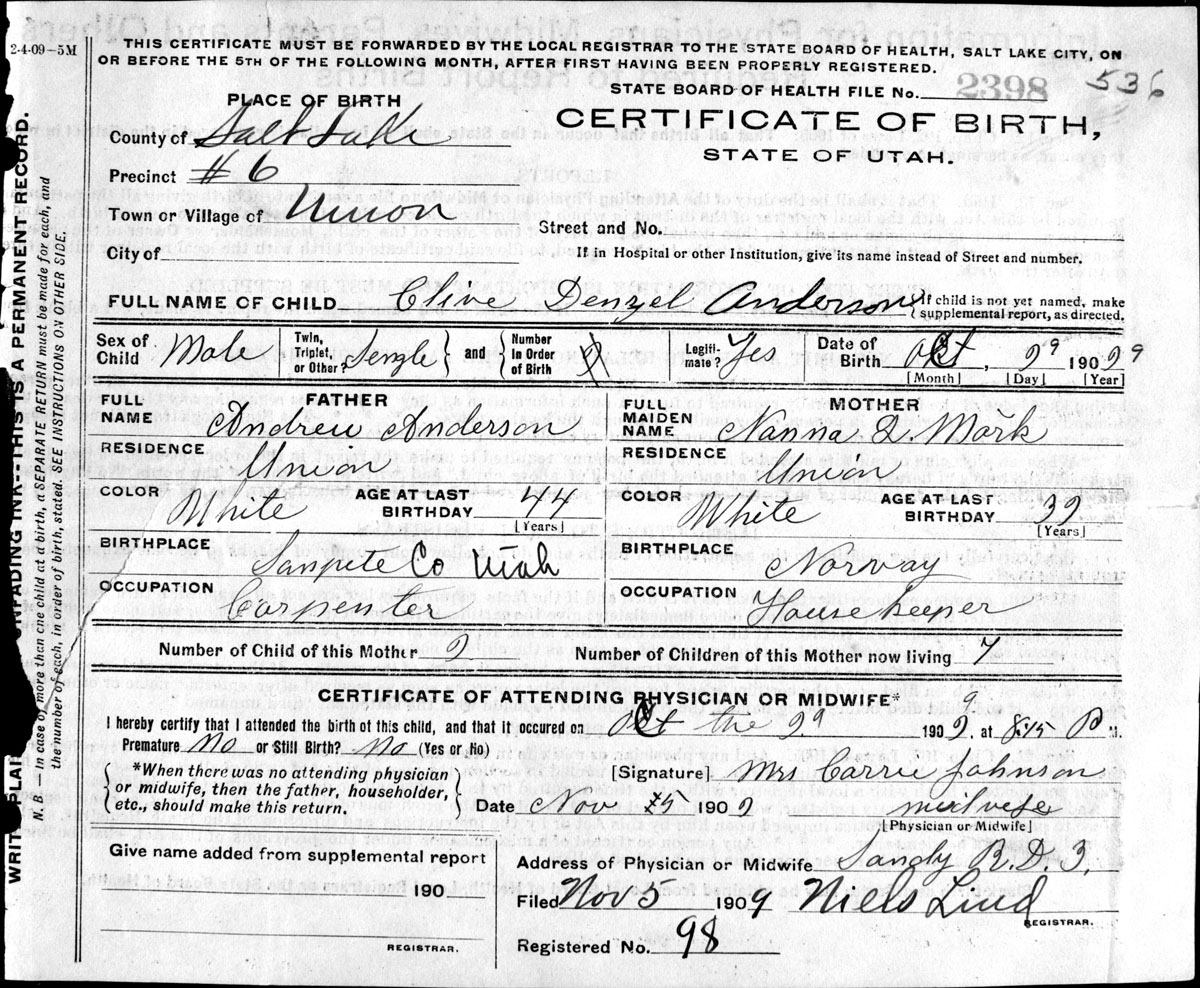 2-4-09—5M
THIS CERTIFICATE MUST BE FORWARDED BY THE LOCAL REGISTRAR TO THE STATE BOARD OF HEALTH, SALT LAKE CITY, ON
OR BEFORE THE 5TH OF THE FOLLOWING MONTH, AFTER FIRST HAVING BEEN PROPERLY REGISTERED.
STATE BOARD OF HEALTH FILE No. 2398 536
PLACE OF BIRTH
CERTIFICATE OF BIRTH,
STATE OF UTAH.
County of Salt Lake
Precinct #6
Town or Village of Union
Street and No.
City of
If in Hospital or other Institution, give its name instead of Street and number.
FULL NAME OF CHILD Clive Denzel Anderson {If child is not yet named, make supplemental report, as directed.
Sex of Child Male Twin, Triplet, or Other? Sengle } and { Number in Order of Birth Legiti-mate? Yes Date of Birth Oct, 29 1909
[Month] [Day] [Year]
FATHER
FULL NAME Andrew Anderson
RESIDENCE Union
COLOR White AGE AT LAST BIRTHDAY 44
[Years]
BIRTHPLACE Sanpete Co Utah
OCCUPATION Carpenter
MOTHER
FULL MAIDEN NAME Nanna L. Mork
RESIDENCE Union
COLOR White AGE AT LAST BIRTHDAY 39
[Years]
BIRTHPLACE Norway
OCCUPATION Housekeeper
Number of Child of this Mother 9 Number of Children of this Mother now living 7
CERTIFICATE OF ATTENDING PHYSICIAN OR MIDWIFE*
I hereby certify that I attended the birth of this child, and that it occured on Oct the 29 1909, at 8:15 P M.
Premature No or Still Birth? No (Yes or No)
{ *When there was no attending physician or midwife, then the father, householder, etc., should make this return. }
[Signature] Mrs Carrie Johnson
Date Nov 5 1909 midwife
[Physician or Midwife]
Give name added from supplemental report
190
REGISTRAR.
Address of Physician or Midwife Sandy R.D. 3.
Filed Nov 5 1909 Niels Lind
REGISTRAR.
Registered No. 98
WRITE PLAI FADING INK--THIS IS A PERMANENT RECORD.
N. B.—In case of more than one child at birth, a SEPARATE RETURN must be made for each, and
the number of each, in order of birth, stated. SEE INSTRUCTIONS ON OTHER SIDE.